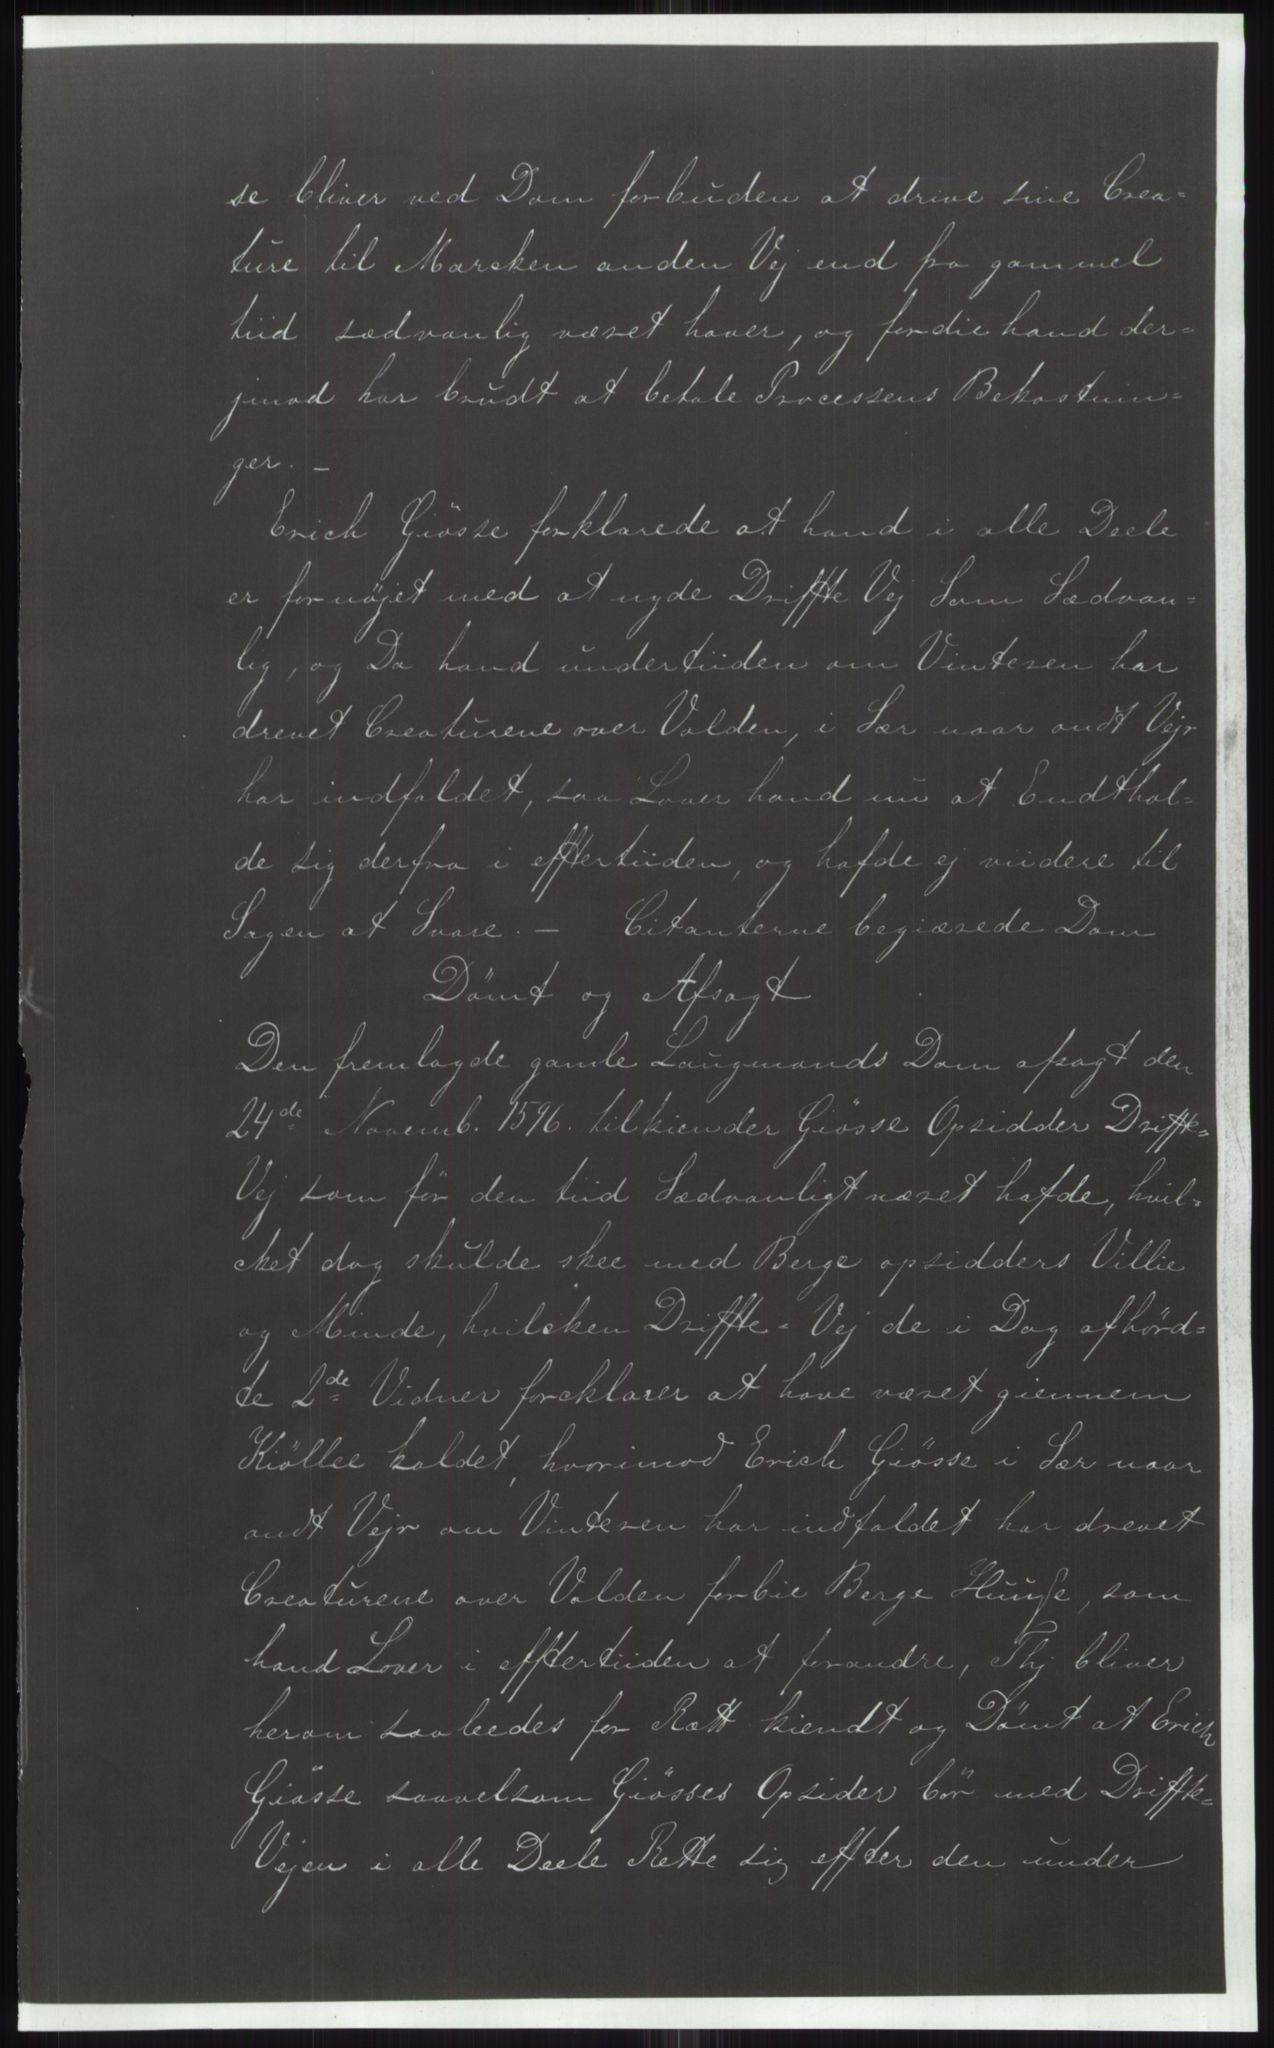 se bliver ved Dom forbuden at drive sine Crea=
ture til Marcken anden Vej end fra gammel
tiid sædvanlig været haver, og fordie hand der=
jmod har brudt at betale Processens Bekostnin=
ger. –
Erich Giösse forklarede at hand i alle Deele
er fornöjet med at nyde Driffte Vej Som Sædvan=
lig, og Da hand undertiiden om Vinteren har
drevet Creaturene over Volden, i Sær naar ondt Vejr
har indfaldet, saa Lover hand nu at Endthol=
de sig derfra i efftertiiden, og hafde ej viidere til
Sagen at Svare. – Citanterne begiærede Dom
Dömt og Afsagt
Den fremlagde gamle Laugmands Dom afsagt den
24de Novemb. 1596. tilkiender Giösse Opsidder Driffte=
Vej som för den tiid Sædvanligt været hafde, hvil=
cket dog skulde skee med Berge opsidders Villie
og Minde, hvilcken Driffte= Vej de i Dag afhörd=
te 2de Vidner forcklarer at have været giennem
Kiöllee kaldet, hvorimod Erich Giösse i Sær naar
ondt Vejr om Vinteren har indfaldet har drevet
Creaturene over Volden forbie Berge Huuse, som
hand Lover i efftertiiden at forandre, Thj bliver
herom saaleedes for Rætt kiendt og Dömt at Erich
Giösse saavelsom Giösses Opsider bör med Driffte=
Vejen i alle Deele Rette sig effter den under